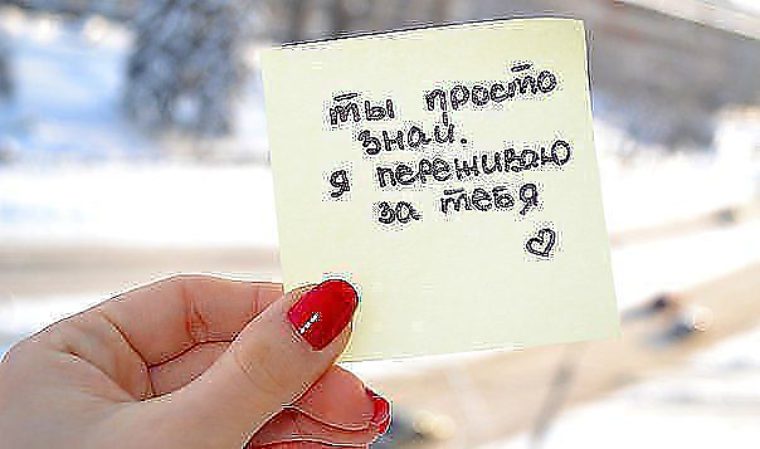 ты просто
знай.
я переживаю
за тебя